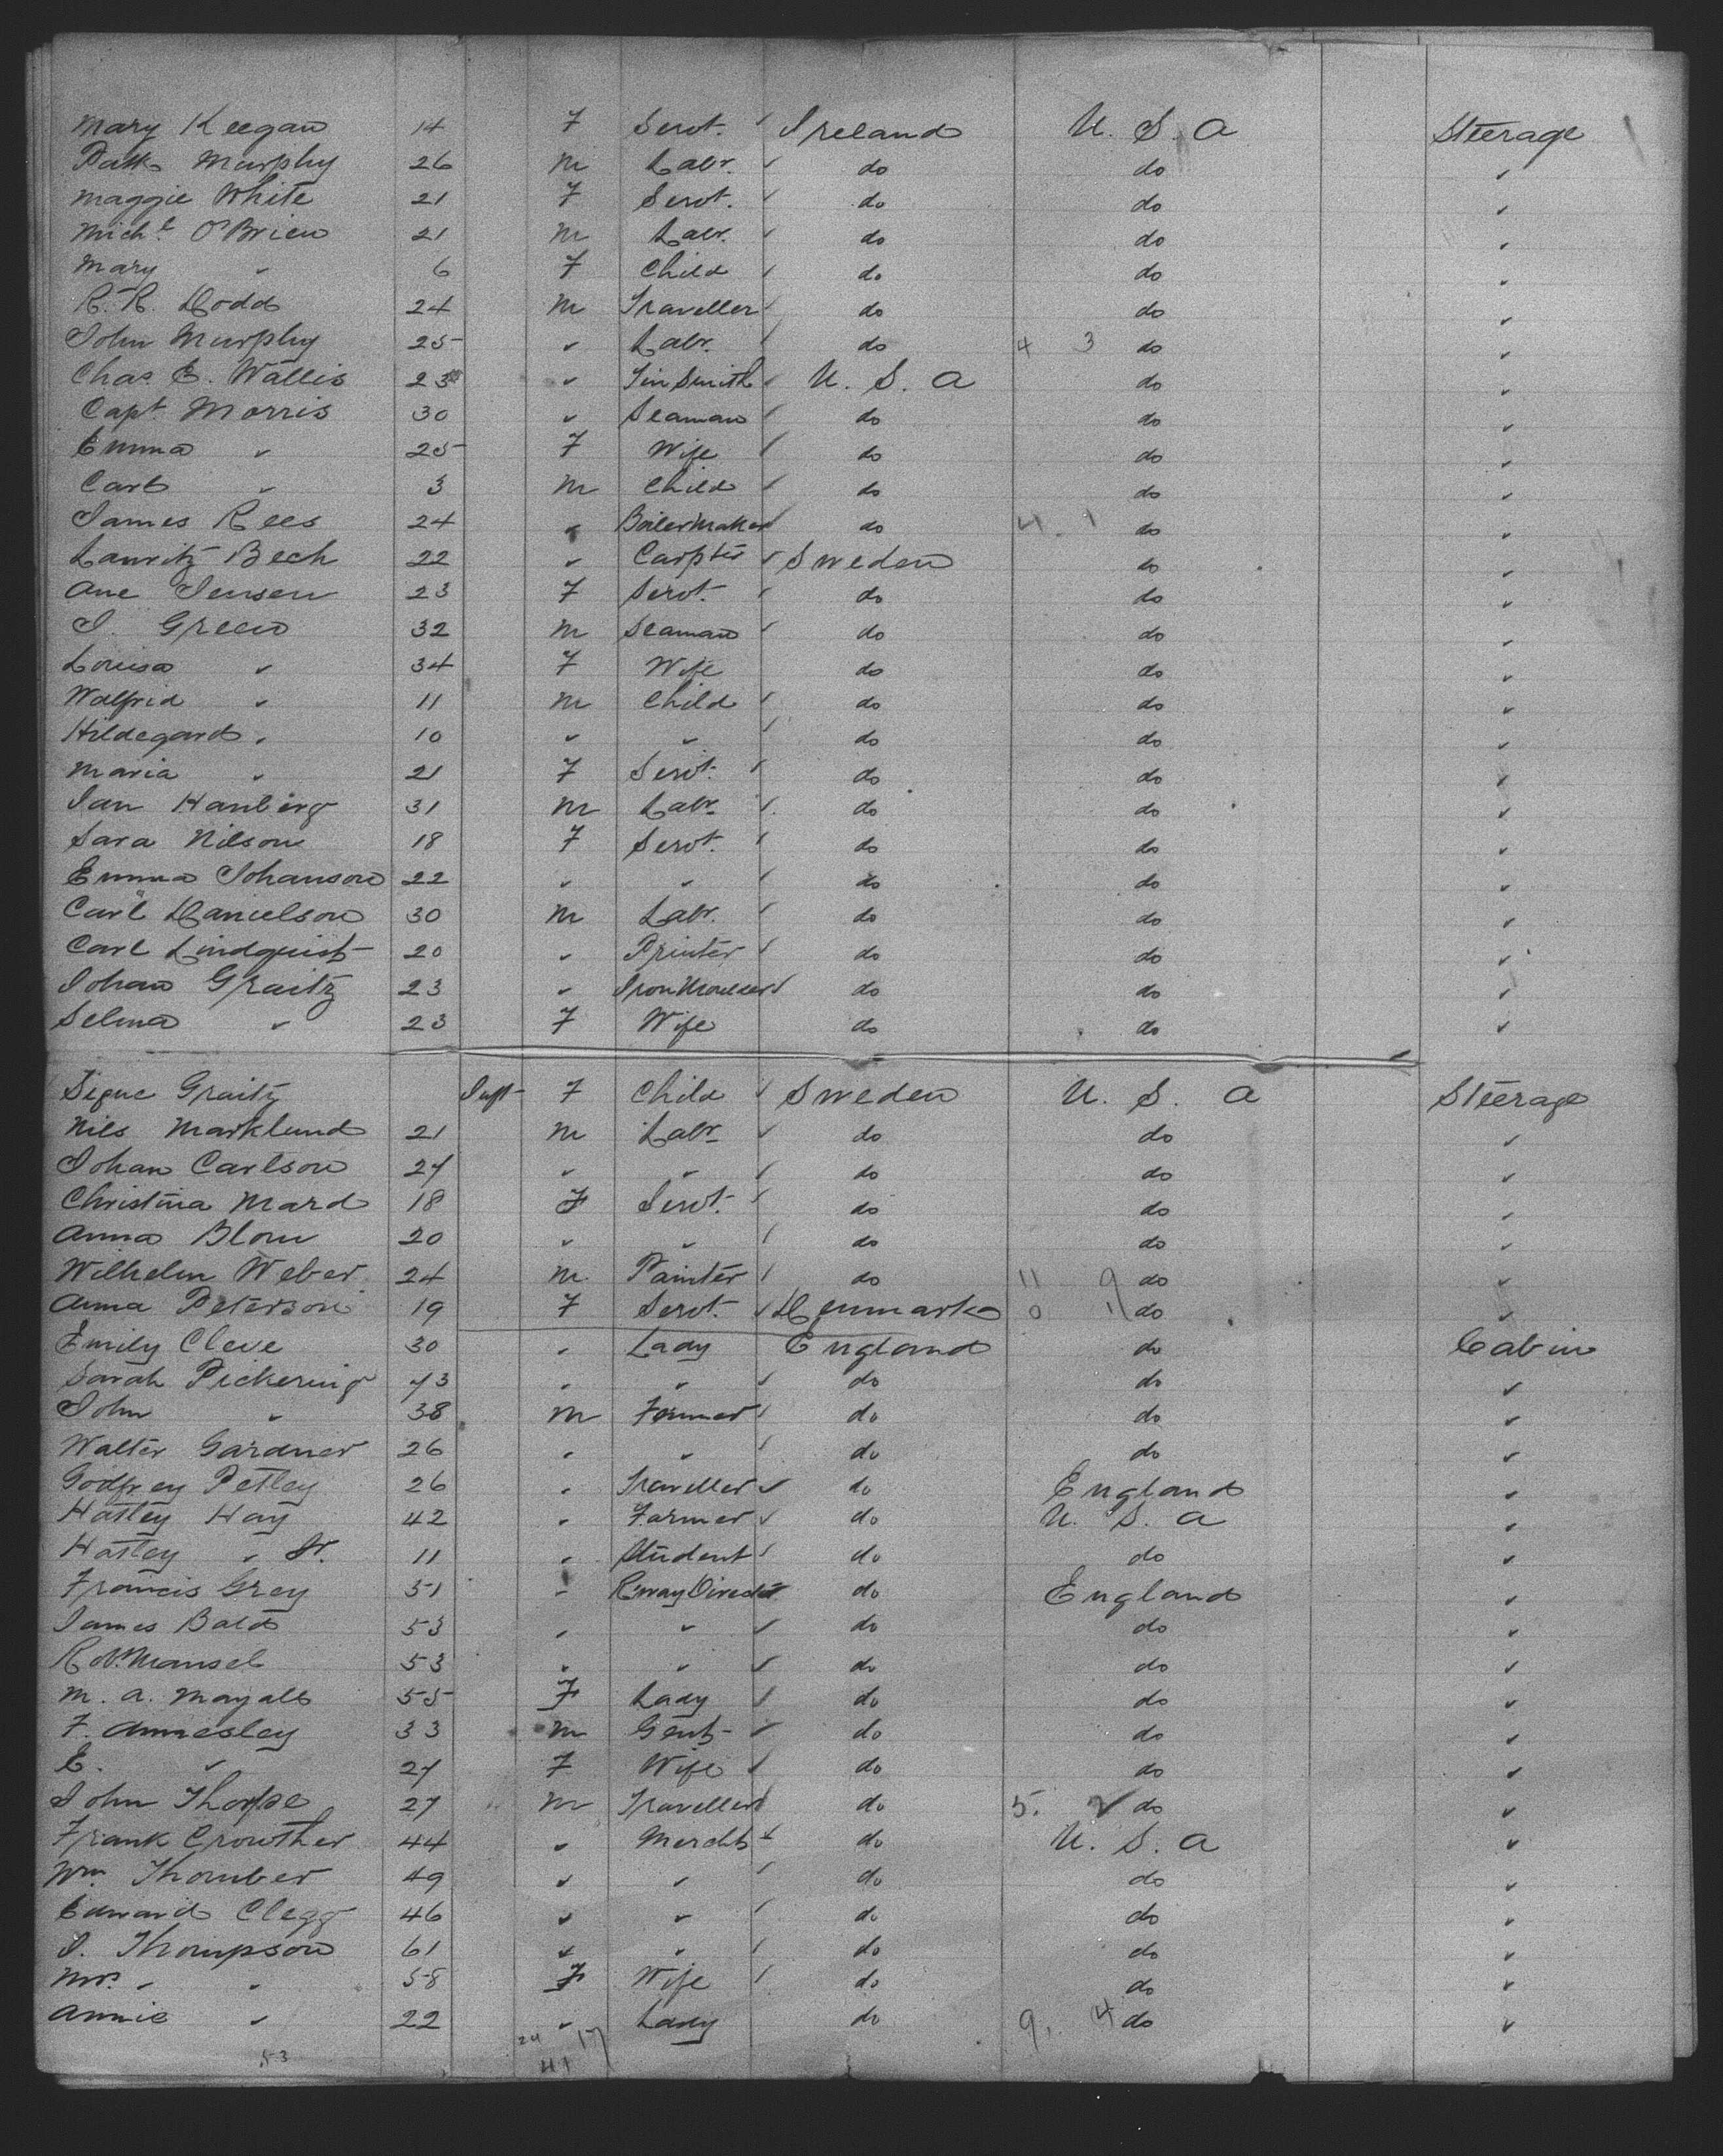 Mary Keegan 14 F Servt. Ireland U. S. A Steerage
Patk Murphy 26 M Labr. do do "
Maggie White 21 F Servt. do do "
Michl. O'Brien 21 M Labr. do do "
Mary " 6 F Child do do "
R. R. Dodd 24 M Traveller do do "
John Murphy 25 " Labr. do 4 3 do "
Chas. E. Wallis 23 " Tin Smith U. S. A do "
Capt Morris 30 " Seaman do do "
Emma " 25 F Wife do do "
Carl " 3 M Child do do "
James Rees 24 " Boiler Maker do 4 1 do "
Lauritz Bech 22 " Carptr Sweden do "
Ane Jensen 23 F Servt. do do "
J. Green 32 M Seaman do do "
Louisa " 34 F Wife do do "
Walfrid " 11 M Child do do "
Hildegard " 10 " " do do "
Maria " 21 F Servt. do do "
Jan Hanberg 31 M Labr. do do "
Sara Nilson 18 F Servt. do do "
Emma Johanson 22 " " do do "
Carl Danielson 30 M Labr. do do "
Carl Lindquist 20 " Printer do do "
Johan Graitz 23 " Iron Moulder do do "
Selma " 23 F Wife do do "
Signe Graitz Inft F Child Sweden U. S. A Steerage
Nils Marklund 21 M Labr do do "
Johan Carlson 27 " " do do "
Christina Mard 18 F Servt. do do "
Anna Blom 20 " " do do "
Wilhelm Weber 24 M. Painter do 11 9 do "
Anna Peterson 19 F Servt. Denmark 0 1 do "
Emily Cleve 30 " Lady England do Cabin
Sarah Pickering 73 " " do do "
John " 38 M Farmer do do "
Walter Gardner 26 " " do do "
Godfrey Petley 26 " Traveller do England "
Hatley Hay 42 " Farmer do U. S. A "
Hatley " Jr. 11 " Student do do "
Francis Grey 51 " Rway Director do England "
James Bald 53 " " do do "
Robt. Mansel 53 " " do do "
M. A. Mayall 55 F Lady do do "
F. Annesley 33 M Gent do do "
E. " 27 F Wife do do "
John Thorpe 27 M Traveller do 5. 2 do "
Frank Crowther 44 " Mercht do U. S. A "
Wm. Thornber 49 " " do do "
Edward Clegg 46 " " do do "
J. Thompson 61 " " do do "
Mrs. " 58 F Wife do do "
Annie " 22 " Lady do 9. 4 do "
53 24 17
41